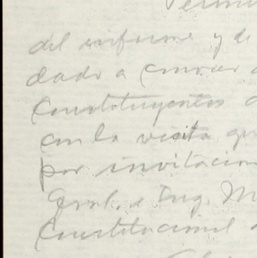 del informe y de
dado a conocer
Constituyentes
con la visita que
por invitacion
Gral. e Ing. M
Constitucional